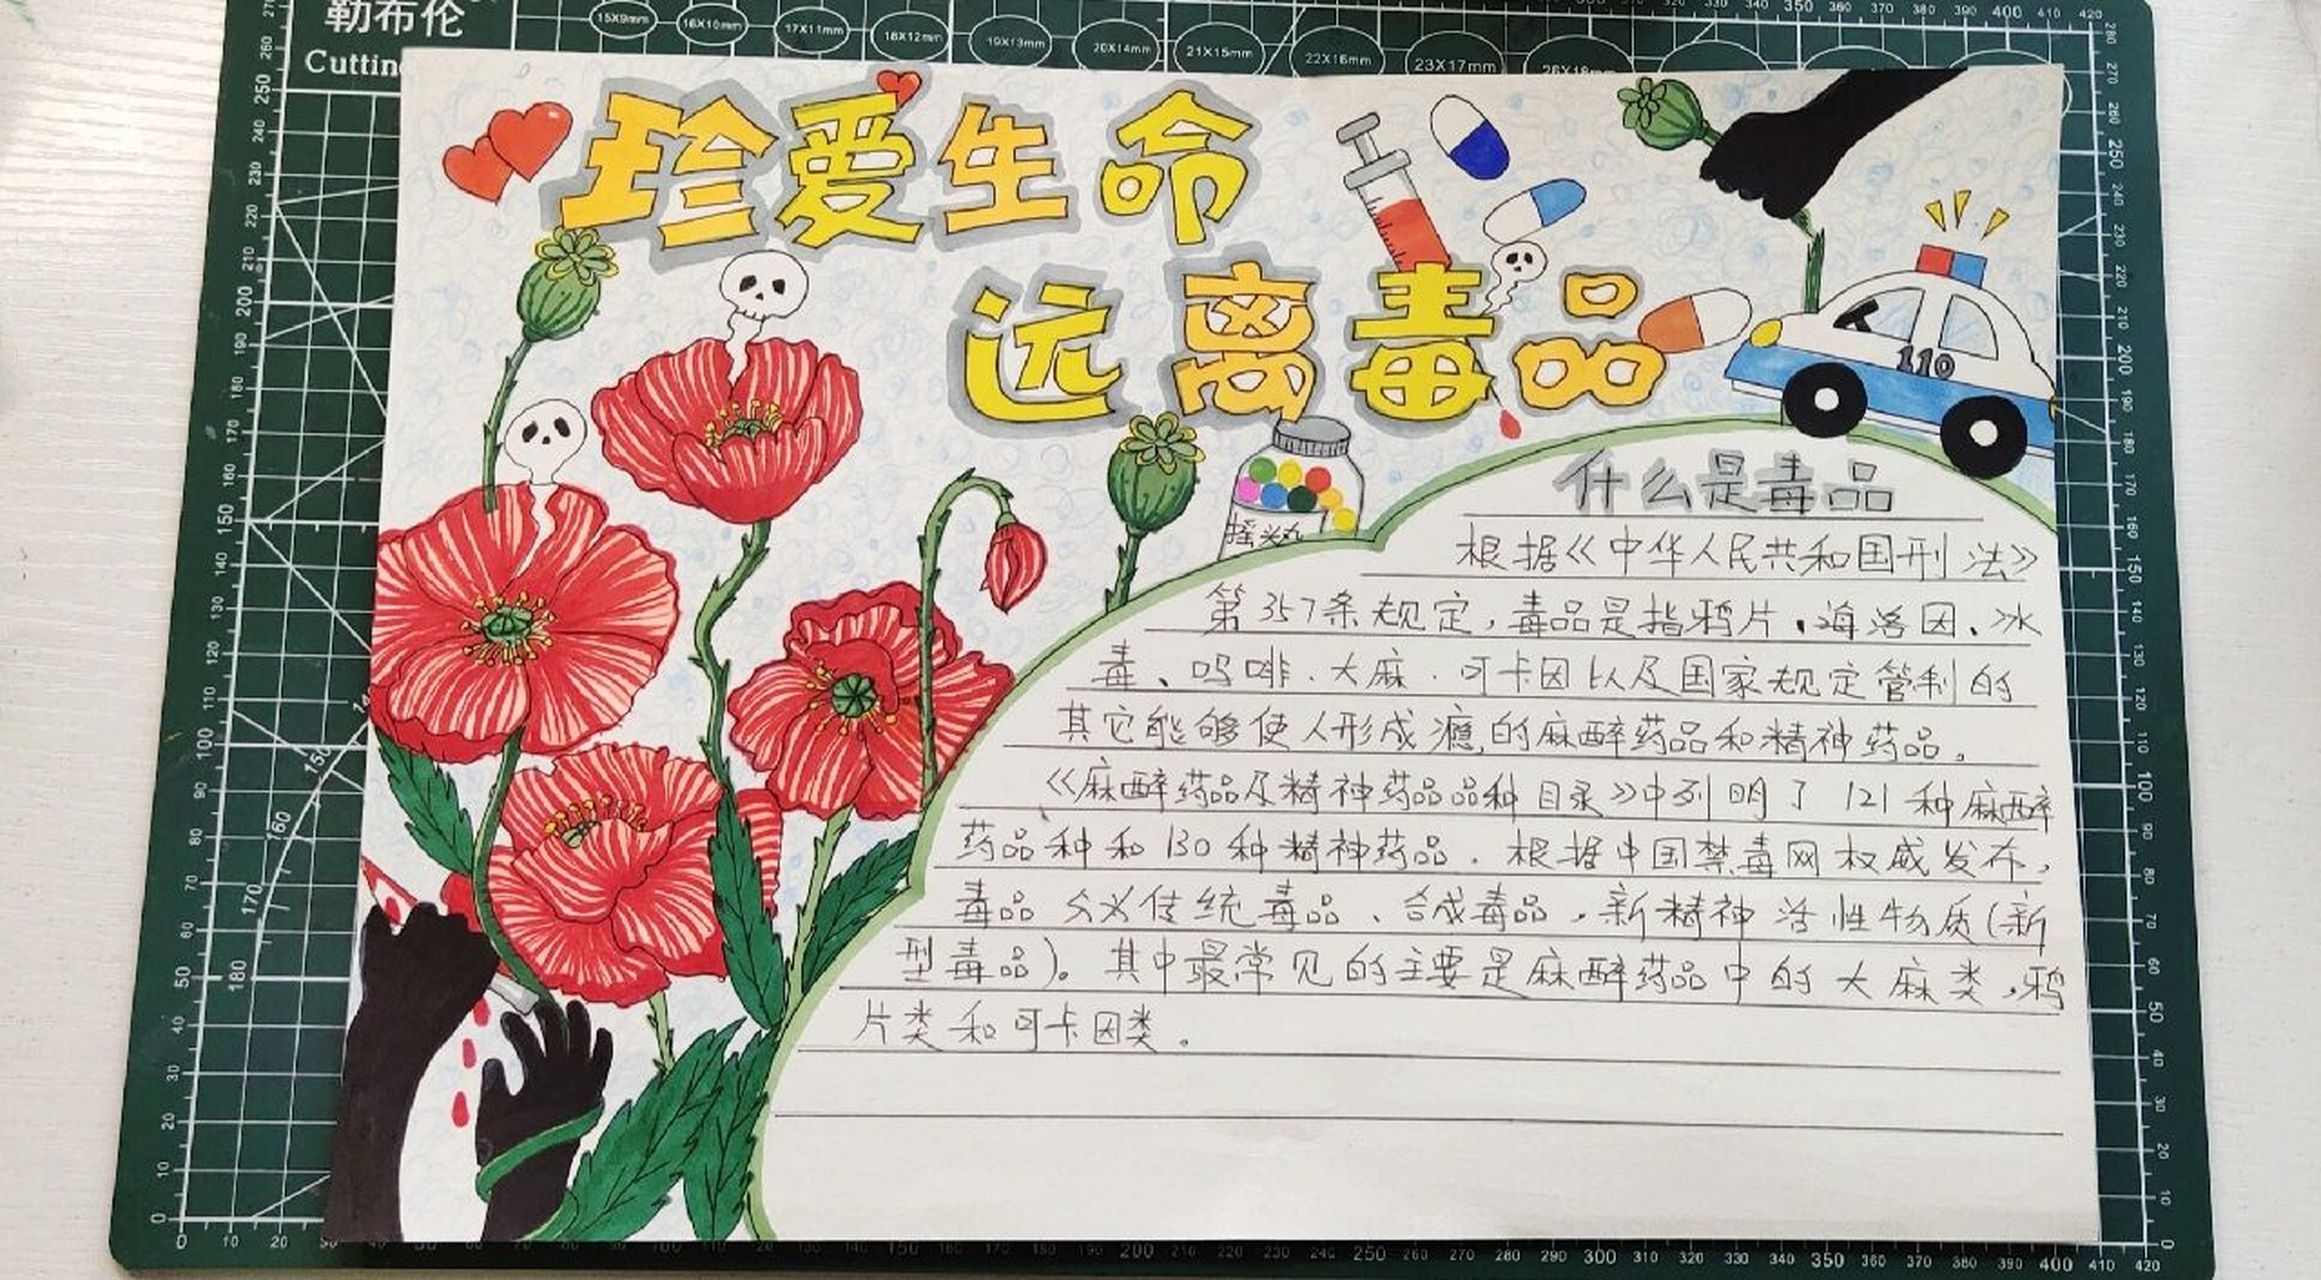 勒布伦
Cuttin
15X9mm
16X10mm
17X11mm
18X12mm
19X13mm
20X14mm
21X15mm
22X16mm
23X17mm
26X18mm
珍爱生命
远离毒品
110
摇头丸
什么是毒品
根据《中华人民共和国刑法》
第357条规定，毒品是指鸦片、海洛因、冰
毒、吗啡、大麻、可卡因以及国家规定管制的
其它能够使人形成瘾的麻醉药品和精神药品。
《麻醉药品及精神药品品种目录》中列明了121种麻醉
药品种和130种精神药品. 根据中国禁毒网权威发布，
毒品分义传统毒品、合成毒品，新精神活性物质(新
型毒品)。其中最常见的主要是麻醉药品中的大麻类，鸦
片类和可卡因类。